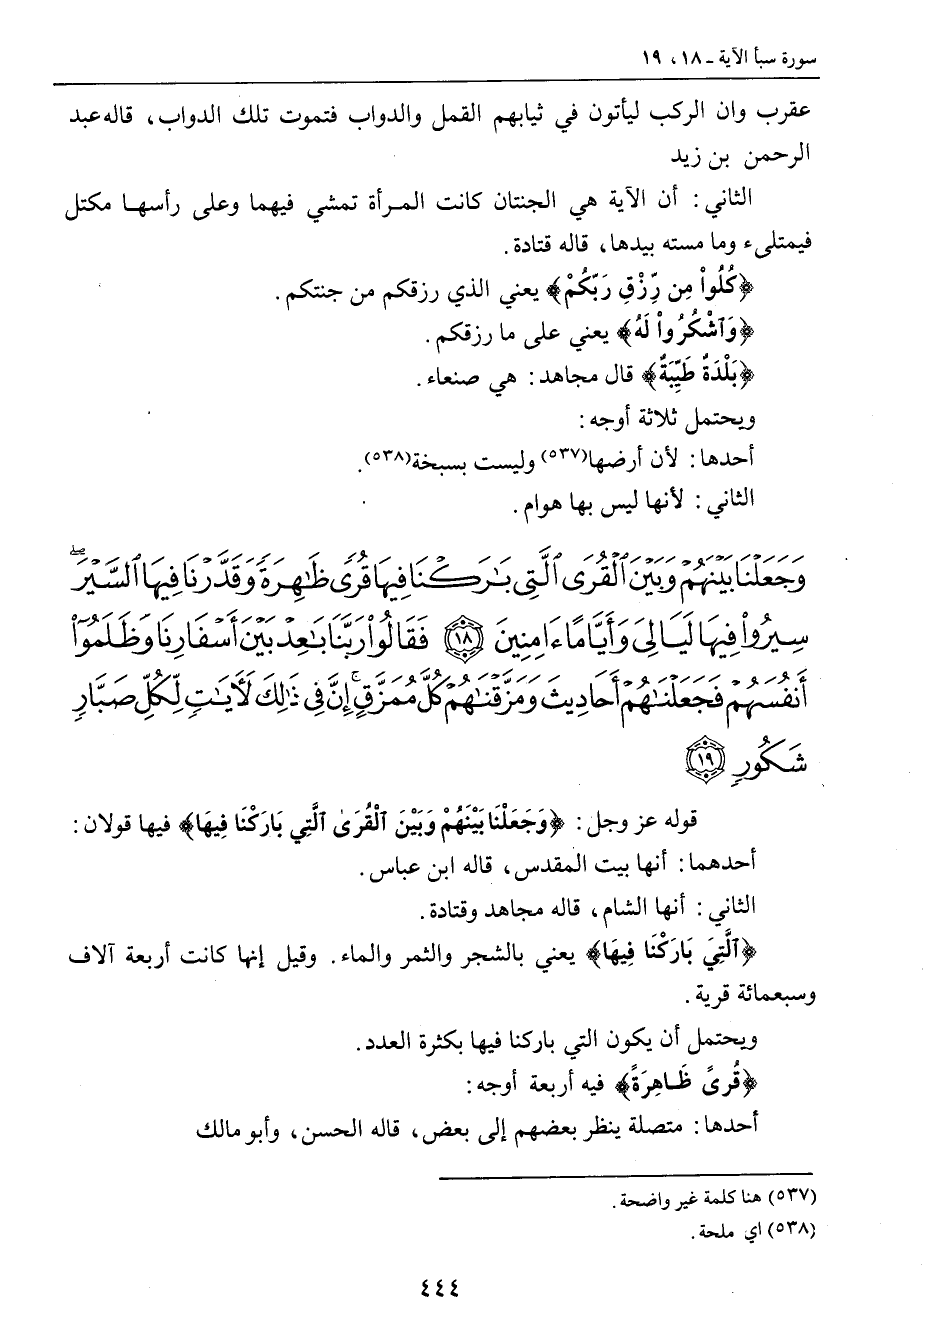 سورة سبأ الآية ـ ١٨، ١٩
عقرب وان الركب ليأتون في ثيابهم القمل والدواب فتموت تلك الدواب، قاله عبد
الرحمن بن زيد
الثاني: أن الآية هي الجنتان كانت المرأة تمشي فيهما وعلى رأسها مكتل
فيمتلىء وما مسته بيدها، قاله قتادة.
﴿كُلُواْ مِن رِّزْقِ رَبِّكُمْ﴾ يعني الذي رزقكم من جنتكم.
﴿وَٱشْكُرُواْ لَهُ﴾ يعني على ما رزقكم.
﴿بَلْدَةٌ طَيِّبَةٌ﴾ قال مجاهد: هي صنعاء.
ويحتمل ثلاثة أوجه:
أحدها: لأن أرضها(٥٣٧) وليست بسبخة(٥٣٨).
الثاني: لأنها ليس بها هوام.
وَجَعَلْنَا بَيْنَهُمْ وَبَيْنَ ٱلْقُرَى ٱلَّتِي بَٰرَكْنَا فِيهَا قُرًى ظَٰهِرَةً وَقَدَّرْنَا فِيهَا ٱلسَّيْرَ ۖ
سِيرُواْ فِيهَا لَيَالِيَ وَأَيَّامًا ءَامِنِينَ ١٨ فَقَالُواْ رَبَّنَا بَٰعِدْ بَيْنَ أَسْفَارِنَا وَظَلَمُوٓاْ
أَنفُسَهُمْ فَجَعَلْنَٰهُمْ أَحَادِيثَ وَمَزَّقْنَٰهُمْ كُلَّ مُمَزَّقٍ ۚ إِنَّ فِي ذَٰلِكَ لَأَيَٰتٍ لِّكُلِّ صَبَّارٍ
شَكُورٍ ١٩
قوله عز وجل: ﴿وَجَعَلْنَا بَيْنَهُمْ وَبَيْنَ ٱلْقُرَىٰ ٱلَّتِي بَارَكْنَا فِيهَا﴾ فيها قولان:
أحدهما: أنها بيت المقدس، قاله ابن عباس.
الثاني: أنها الشام، قاله مجاهد وقتادة.
﴿ٱلَّتِيَ بَارَكْنَا فِيهَا﴾ يعني بالشجر والثمر والماء. وقيل إنها كانت أربعة آلاف
وسبعمائة قرية.
ويحتمل أن يكون التي باركنا فيها بكثرة العدد.
﴿قُرىً ظَاهِرَةً﴾ فيه أربعة أوجه:
أحدها: متصلة ينظر بعضهم إلى بعض، قاله الحسن، وأبو مالك
(٥٣٧) هنا كلمة غير واضحة.
(٥٣٨) اي ملحة.
٤٤٤